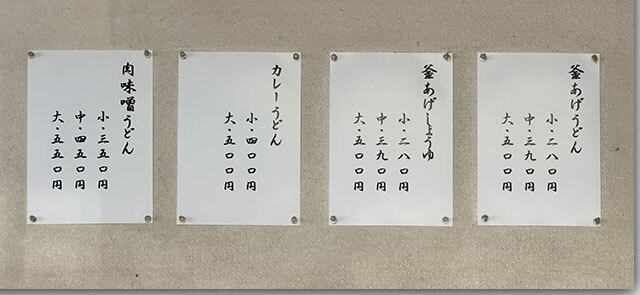 釜あげうどん
小・二八〇円
中・三九〇円
大・五〇〇円
釜あげしょうゆ
小・二八〇円
中・三九〇円
大・五〇〇円
カレーうどん
小・四〇〇円
大・五〇〇円
肉味噌うどん
小・三五〇円
中・四五〇円
大・五五〇円